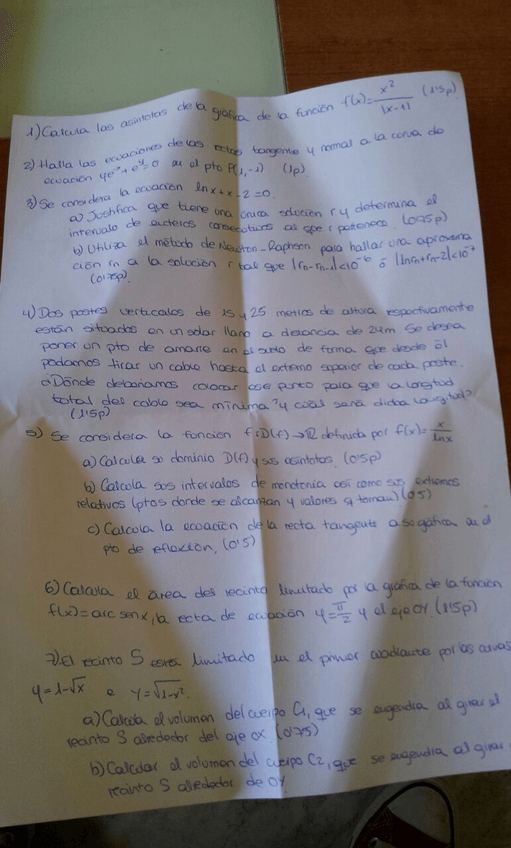 1) Calcula las asíntotas de la gráfica de la función f(x)= x²/|x-1| (1'5p)
2) Halla las ecuaciones de las rectas tangente y normal a la curva de
ecuación en el pto P(1,-1) (1p)
3) Se considera la ecuación lnx+x-2=0.
a) Justifica que tiene una única solución r y determina el
intervalo de enteros consecutivos al que r pertenece. (0'75p)
b) Utiliza el método de Newton-Raphson para hallar una aproxima
ción rn a la solución r tal que |rn-rn-1|<10⁻⁶ ó |lnrn+rn-2|<10⁻⁷
(0'75p)
4) Dos postes verticales de 15 y 25 metros de altura respectivamente
están situados en un solar llano a distancia de 24m Se desea
poner un pto de amarre en el suelo de forma que desde él
podamos tirar un cable hasta el extremo superior de cada poste.
¿Dónde deberíamos colocar ese punto para que la longitud
total del cable sea mínima? y cuál será dicha longitud?
(1'5p)
5) Se considera la función f:D(f)→ℝ definida por f(x)= x/lnx
a) Calcula su dominio D(f) y sus asíntotas. (0'5p)
b) Calcula sus intervalos de monotonía así como sus extremos
relativos (ptos donde se alcanzan y valores q toman) (0'5)
c) Calcula la ecuación de la recta tangente a su gráfica en el
pto de inflexión. (0'5)
6) Calcula el área del recinto limitado por la gráfica de la función
f(x)=arc senx, la recta de ecuación y=π/2 y el eje OY. (1'5p)
7) El recinto S está limitado en el primer cuadrante por las curvas
y=1-√x e y=√1-x².
a) Calcula el volumen del cuerpo C1, que se engendra al girar el
recinto S alrededor del eje OX (0'75)
b) Calcular el volumen del cuerpo C2, que se engendra al girar
recinto S alrededor de OY